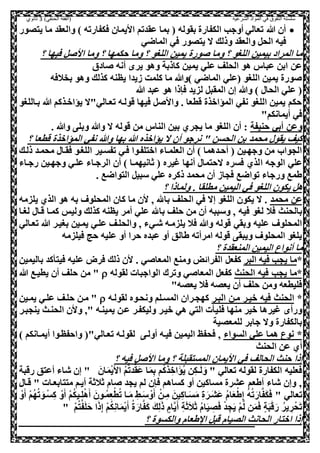 سلسلة التفوق في المواد الشرعية (الفقه الحنفي) ٢ ثانوي
• أن الله تعالي أوجب الكفارة بقوله ( بما عقدتم الأيمان فكفارته ) والعقد ما يتصور
فيه الحل والعقد وذلك لا يتصور في الماضي
ما المراد بيمين اللغو ؟ وما صورة يمين اللغو ؟ وما حكمها ؟ وما الأصل فيها ؟
عن ابن عباس هو الحلف علي يمين كاذبة وهو يرى أنه صادق
صورة يمين اللغو (علي الماضي )والله ما كلمت زيدا يظنه كذلك وهو بخلافه
( علي الحال ) والله إن المقبل لزيد فإذا هو عبد الله
حكم يمين اللغو نفي المؤاخذة قطعا . والأصل فيها قولـه تعالي"لا يؤاخذكم الله باللغو
في أيمانكم"
وعن أبي حنيفة : أن اللغو ما يجري بين الناس من قوله لا والله وبلى والله .
كيف يقول محمد بن الحسن " نرجو أن لا يؤاخذ الله بها والله نفي المؤاخذة قطعا ؟
الجواب من وجهين ( أحدهما ) أن العلماء اختلفوا في تفسير اللغو فقال محمد ذلك
علي الوجه الذي فسره لاحتمال أنها غيره ( ثانيهما ) أن الرجاء علي وجهين رجاء
طمع ورجاء تواضع فجاز أن محمد ذكره علي سبيل التواضع .
هل يكون اللغو في اليمين مطلقا . ولماذا ؟
عن محمد . لا يكون اللغو إلا في الحلف بالله . لأن ما كان المحلوف به هو الذي يلزمه
بالحنث فلا لغو فيه , وسببه أن من حلف بالله علي أمر يظنه كذلك وليس كما قال لغا
المحلوف عليه وبقي قوله والله فلا يلزمه شيء , والحلف علي يمين بغير الله تعالي
يلغو المحلوف ويبقى قوله امرأته طالق أو عبده حرا أو عليه حج فيلزمه
ما أنواع اليمين المنعقدة ؟
*ما يجب فيه البر كفعل الفرائض ومنع المعاصي . لأن ذلك فرض عليه فيتأكد باليمين
*ما يجب فيه الحنث كفعل المعاصي وترك الواجبات لقوله ρ " من حلف أن يطيع الله
فليطعه ومن حلف أن يعصه فلا يعصه"
* الحنث فيه خير من البر كهجران المسلم ونحوه لقوله ρ " من حلف علي يمين
ورأى غيرها خير منها فليأت التي هي خير وليكفر عن يمينه ", ولأن الحنث ينجبر
بالكفارة ولا جابر للمعصية
* نوع هما علي السواء , فحفظ اليمين فيه أولى لقوله تعالي"( واحفظوا أيمانكم )
أي عن الحنث
إذا حنث الحالف في الأيمان المستقبلة ؟ وما الأصل فيه ؟
فعليه الكفارة لقوله تعالي " وَلَـكِن يُؤَاخِذُكُم بِمَا عَقَّدتُّمُ الأَيْمَانَ " إن شاء أعتق رقبة
, وإن شاء أطعم عشرة مساكين أو كساهم فإن لم يجد صام ثلاثة أيام متتابعات " قال
تعالي " فَكَفَّارَتُهُ إِطْعَامُ عَشَرَةِ مَسَاكِينَ مِنْ أَوْسَطِ مَا تُطْعِمُونَ أَهْلِيكُمْ أَوْ كِسْوَتُهُمْ أَوْ
تَحْرِيرُ رَقَبَةٍ فَمَن لَّمْ يَجِدْ فَصِيَامُ ثَلاَثَةِ أَيَّامٍ ذَلِكَ كَفَّارَةُ أَيْمَانِكُمْ إِذَا حَلَفْتُمْ "
إذا اختار الحانث الصيام قبل الإطعام والكسوة ؟